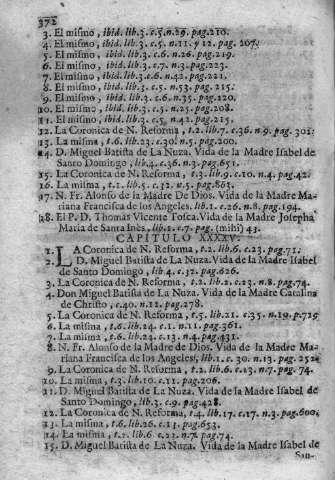 372
3. El mismo, ibid. lib.3. c.5. n.29. pag.210.
4. El mismo, ibid. lib.3. c.5. n.11. y 12. pag. 207.
5. El mismo, ibid. lib.3. c.6. n.26. pag.219.
6. El mismo, ibid. lib.3. c.7. n.3. pag.223.
7. El mismo, ibid. lib.3. c.6. n.42. pag.221.
8. El mismo, ibid. lib.3. c.5. n.53. pag.215.
9. El mismo, ibid. lib.3. c.6. n.35. pag.220.
10. El mismo, ibid. lib.3. c.5. n.23. pag.208.
11. El mismo, ibid. lib.3. c.5. n.42. pag.215.
12. La Coronica de N. Reforma, t.2. lib.7. c.36. n.9. pag. 301.
13. La misma, t.6. lib.23. c.30. n.5. pag. 200.
14. D. Miguel Batista de La Nuza. Vida de la Madre Isabel de
Santo Domingo, lib.4. c.36. n.3. pag.651.
15. La Coronica de N. Reforma, t.3. lib.9. c.10. n.4. pag.42.
16. La misma, t.2. lib.5. c.12. n.5. pag.863.
17. N. Fr. Alonso de la Madre De Dios. Vida de la Madre Ma-
riana Francisca de los Angeles, lib.1. c.26. n.8. pag.194.
18. El P. D. Thomas Vicente Tosca. Vida de la Madre Josepha
Maria de Santa Inès, lib.1. c.7. pag. (mihi) 43.
CAPITULO XXXXV.
1. LA Coronica de N. Reforma, t.2. lib.6. c.23. pag.71.
2. D. Miguel Batista de La Nuza. Vida de la Madre Isabel
de Santo Domingo, lib.4. c.32. pag.626.
3. La Coronica de N. Reforma, t.2. lib.2. c.23. n.8. pag.74.
4. Don Miguel Batista de La Nuza. Vida de la Madre Catalina
de Christo, c.40. n.12. pag.278.
5. La Coronica de N. Reforma, t.5. lib.21. c.35. n.19. p.729
6. La misma, t.6. lib.24. c.1. n.11. pag.361.
7. La misma, t.6. lib.24. c.13. n.4. pag.431.
8. N. Fr. Alonso de la Madre de Dios. Vida de la Madre Ma-
riana Francisca de los Angeles, lib.1. c.30. n.13. pag. 252.
9. La Coronica de N. Reforma, t.2. lib.6. c.13. n.7. pag. 74.
10. La misma, t.3. lib.10. c.11. pag.206.
11. D. Miguel Batista de La Nuza. Vida de la Madre Isabel de
Santo Domingo, lib.3. c.9. pag.428.
12. La Coronica de N. Reforma, t.4. lib.17. c.17. n.3. pag.600.
13. La misma, t.6. lib.26. c.13. pag.653.
14. La misma, t.2. lib.6. c.22. n.7. pag.74.
15. D. Miguel Batista de La Nuza. Vida de la Madre Isabel de
San-